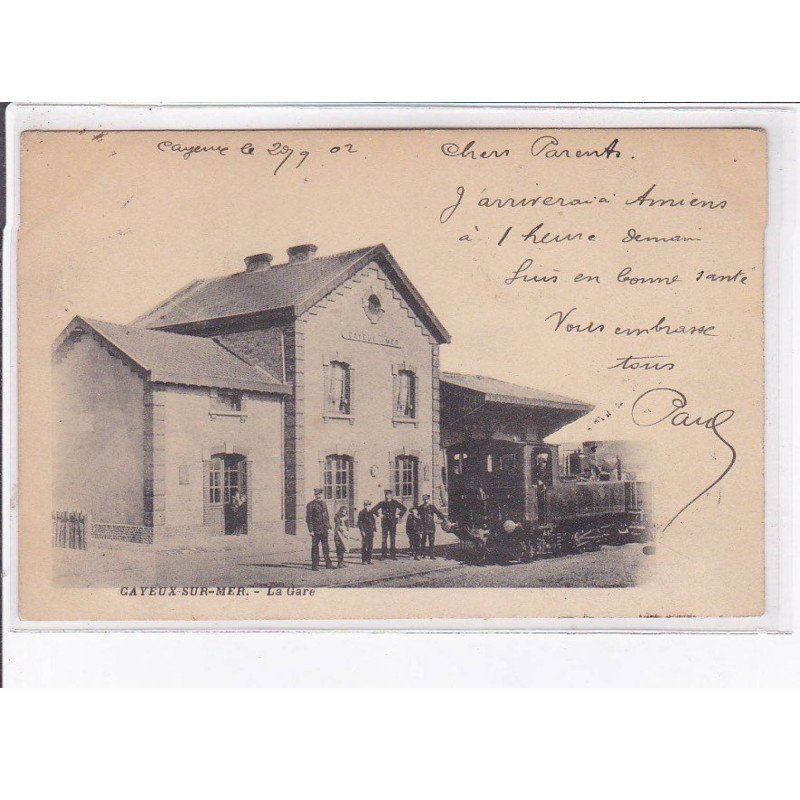 Cayeux le 29/9 02
Chers Parents.
J'arriverai à Amiens
à 1 heure demain
Suis en bonne santé
Vous embrasse
tous
Paul
CAYEUX-MER
CAYEUX-SUR-MER. - La Gare